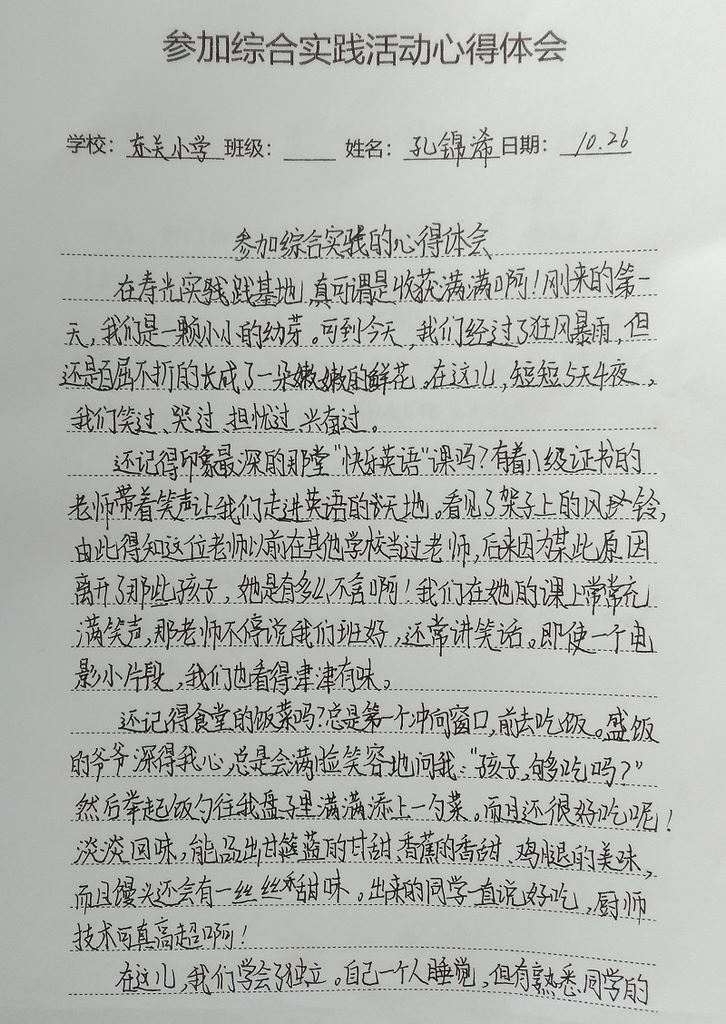 参加综合实践活动心得体会
学校：东关小学 班级： 姓名：孔锦浠 日期：10.26
参加综合实践的心得体会
在寿光实践基地，真可谓是收获满满啊！刚来的第一
天，我们是一颗小小的幼芽。可到今天，我们经过了狂风暴雨，但
还是百屈不折的长成了一朵嫩嫩的鲜花。在这儿，短短5天4夜，
我们笑过、哭过、担忧过、兴奋过。
还记得印象最深的那堂“快乐英语”课吗？有着八级证书的
老师带着笑声让我们走进英语的天地。看见了架子上的风铃，
由此得知这位老师以前在其他学校当过老师，后来因为某此原因
离开了那些孩子，她是有多么不舍啊！我们在她的课上常常充
满笑声，那老师不停说我们班好，还常讲笑话。即使一个电
影小片段，我们也看得津津有味。
还记得食堂的饭菜吗？总是第一个冲向窗口，前去吃饭。盛饭
的爷爷深得我心，总是会满脸笑容地问我：“孩子，够吃吗？”
然后举起饭勺往我盘子里满满添上一勺菜。而且还很好吃呢！
淡淡回味，能品出甘蓝的甘甜、香蕉的香甜、鸡腿的美味，
而且馒头还会有一丝丝香甜味。出来的同学一直说好吃，厨师
技术可真高超啊！
在这儿，我们学会了独立。自己一个人睡觉，但有熟悉同学的